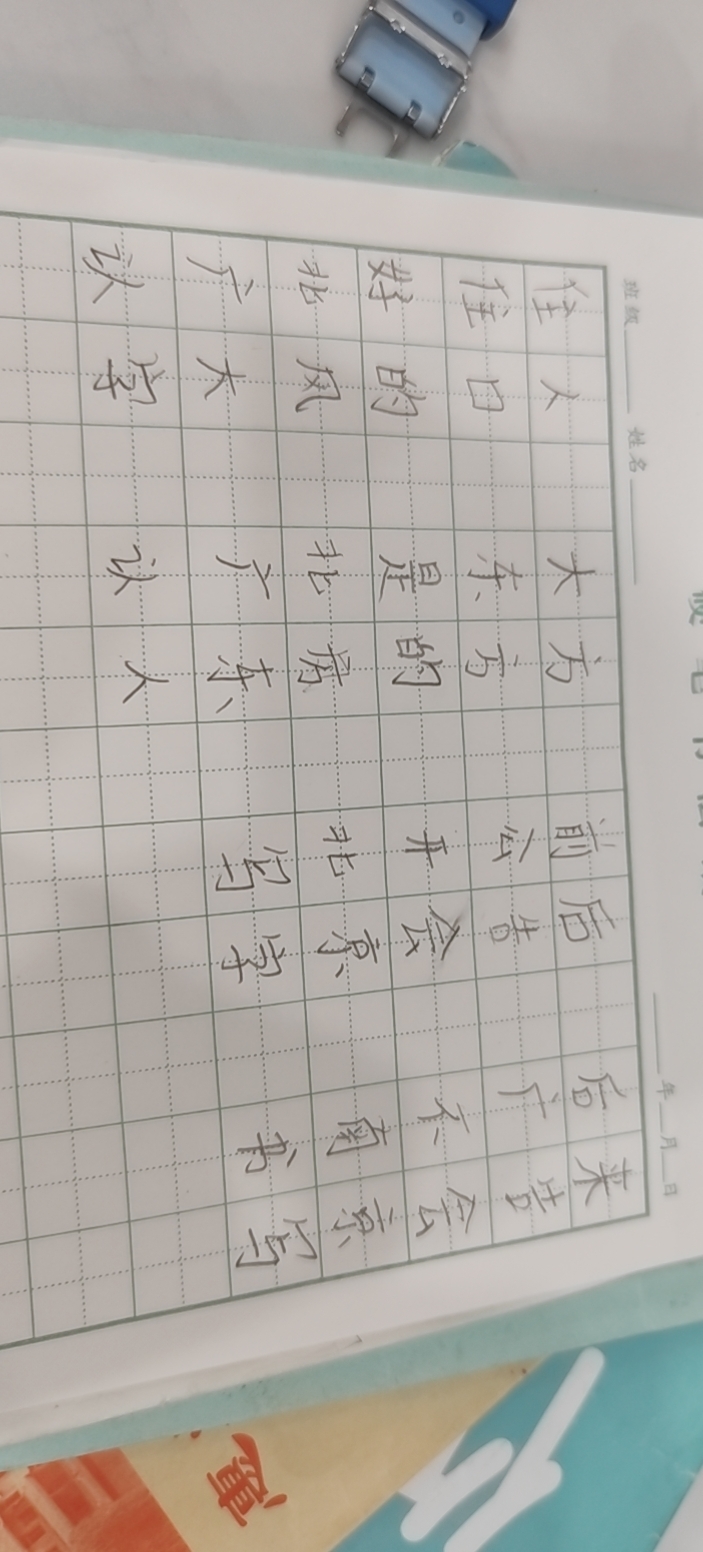 班级 姓名 年 月 日
住人 大方 前后 后来
住口 东方 公告 广告
好的 是的 开会 不会
北风 北房 北京 南京
广大 广东 写字 书写
认字 认人